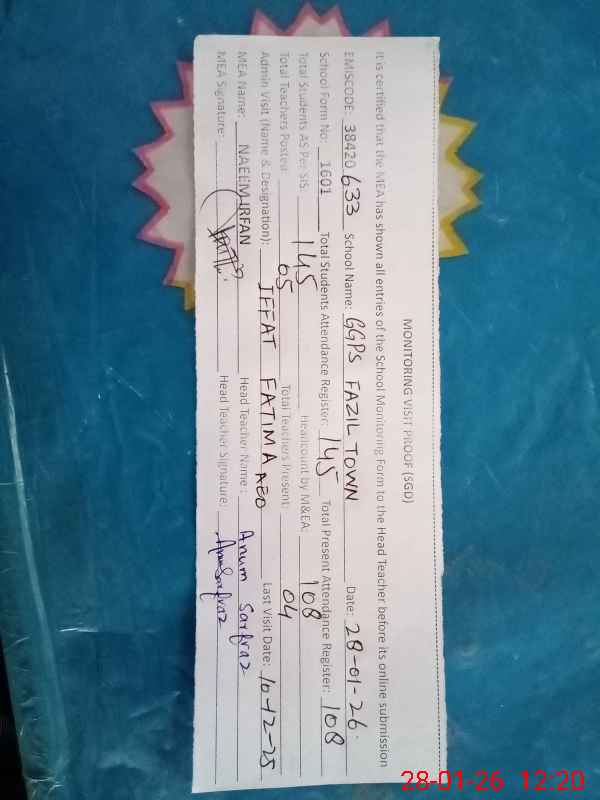 MONITORING VISIT PROOF (SGD)
It is certified that the MEA has shown all entries of the School Monitoring Form to the Head Teacher before its online submission
EMISCODE: 38420633 School Name: GGPS FAZIL TOWN Date: 28-01-26.
School Form No: 1601 Total Students Attendance Register: 145 Total Present Attendance Register: 108
Total Students AS Per SIS: 145 Headcount by M&EA: 108
Total Teachers Posted: 05 Total Teachers Present: 04
Admin Visit (Name & Designation): IFFAT FATIMA AEO Last Visit Date: 10-12-25
MEA Name: NAEEM IRFAN Head Teacher Name: Anum Sarfraz
MEA Signature: Head Teacher Signature: AnumSarfraz
28-01-26 12:20